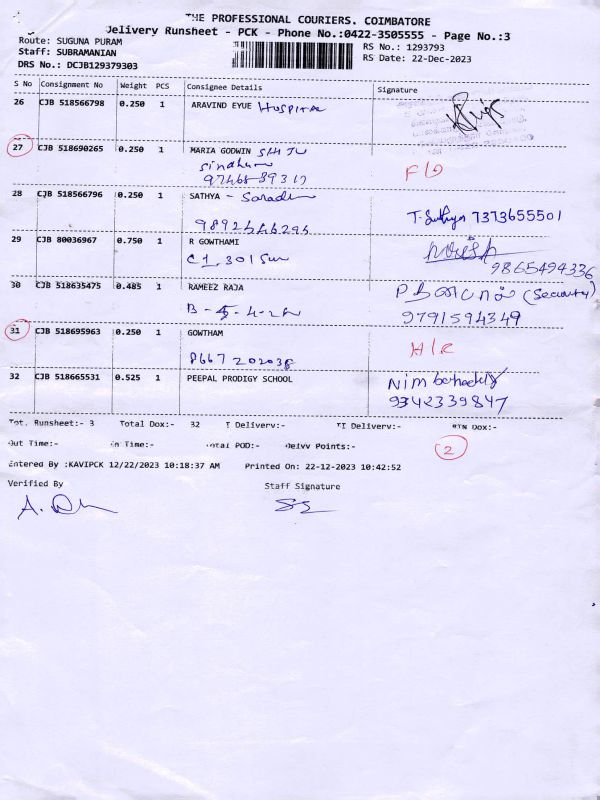 THE PROFESSIONAL COURIERS. COIMBATORE
Jelivery Runsheet - PCK - Phone No.:0422-3505555 - Page No.:3
Route: SUGUNA PURAM
Staff: SUBRAMANIAN
DRS No.: DCJB129379303
RS No.: 1293793
RS Date: 22-Dec-2023
S No Consignment No Weight PCS Consignee Details Signature
26 CJB 518566798 0.250 1 ARAVIND EYUE HOSPITAL
27 CJB 518690265 0.250 1 MARIA GODWIN
F/D
28 CJB 518566796 0.250 1 SATHYA -
T. Sathya 7373655501
29 CJB 80036967 0.750 1 R GOWTHAMI
C1, 301
9865494336
30 CJB 518635475 0.485 1 RAMEEZ RAJA
(Security)
9791594349
31 CJB 518695963 0.250 1 GOWTHAM
32 CJB 518665531 0.525 1 PEEPAL PRODIGY SCHOOL
9342339847
Tot. Runsheet:- 3 Total Dox:- 32 I Delivery:- II Delivery:- RTN Dox:-
Out Time:- In Time:- Total POD:- Delvy Points:-
2
Entered By :KAVIPCK 12/22/2023 10:18:37 AM Printed On: 22-12-2023 10:42:52
Verified By Staff Signature